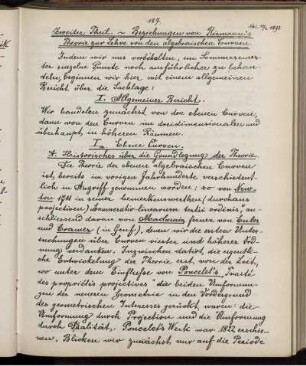 189.
Zweiter Theil. ~ Beziehungen von Riemann's
Theorie zur Lehre von den algebraischen Curven.
Indem wir uns vorbehalten, im Sommersemester
einzelne Puncte noch ausführlicher zu behandeln,
beginnen wir hier mit einem allgemeinen
Bericht über die Sachlage.
I. Allgemeiner Bericht.
Wir handeln zunächst von den ebenen Curven,
dann von den Curven im dreidimensionalen und
überhaupt in höheren Räumen.
I. Ebene Curven.
Historisches über die Grundlegung der Theorie.
Die Theorie der ebenen algebraischen Curven
ist bereits im vorigen Jahrhunderte verschiedentlich
in Angriff genommen worden; so von Newton
1704 in seiner bemerkenswerthen (durchaus
projectiven) Enumeratio linearum tertii ordinis, anschliessend
daran von Maclaurin, ferner von Euler
und Cramer (in Genf), denen wir die ersten Untersuchungen
über Curven vierter und höherer Ordnung
verdanken. Inzwischen datirt die eigentliche
Entwickelung der Theorie erst von der Zeit,
wo unter dem Einflusse von Poncelet's Traité
des propriétés projectives die beiden Umformungen
der neueren Geometrie in den Vordergrund
des geometrischen Interesses gerückt waren: die
Umformung durch Projection und die Umformung
durch Dualität. Poncelet's Werk war 1822 erschienen.
Blicken wir zunächst nur auf die Periode